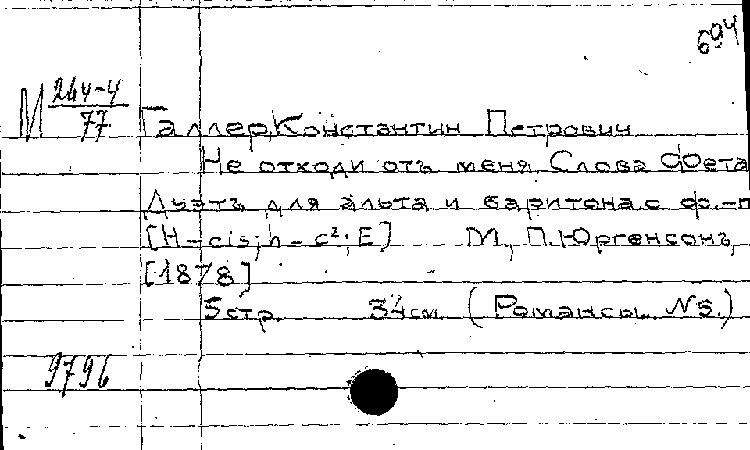 694
М 264-4/77
Галлер, Константин Петрович
Не отходи отъ меня. Слова Фета
Дуэтъ для альта и баритона с ф.-п
[H-cis; h-c²; E] М., П. Юргенсонъ,
[1878]
5 стр. 34 см (Романсы. №5.)
9796